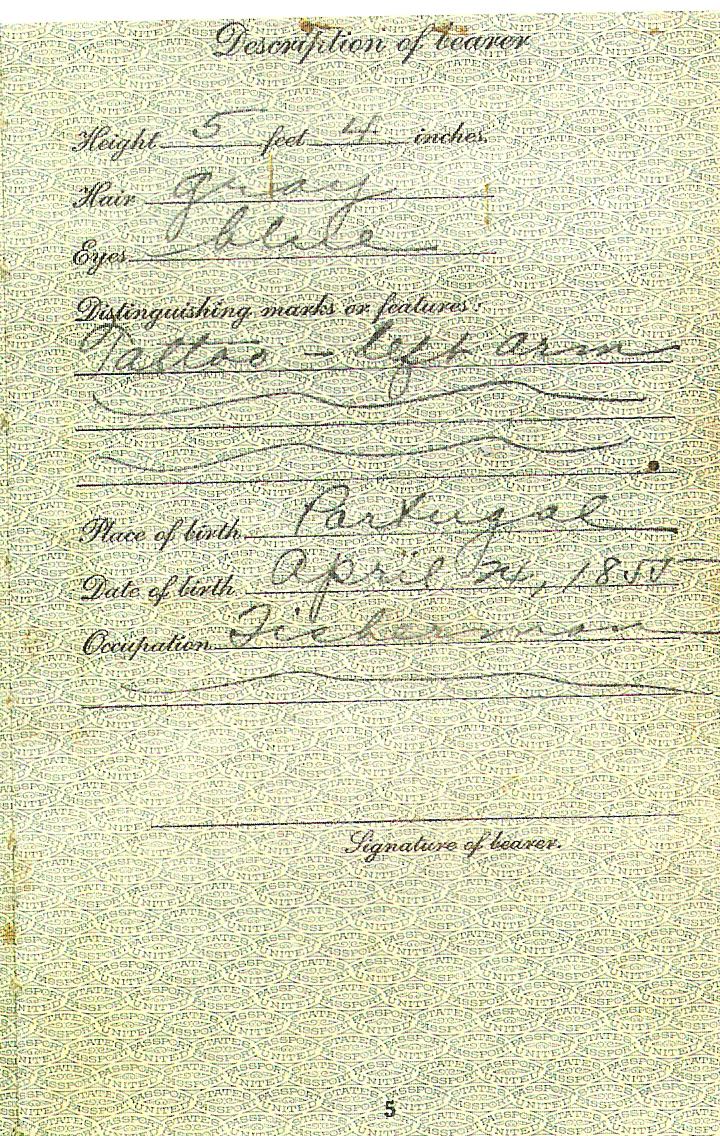 Description of bearer
Height 5 feet 4 inches.
Hair gray
Eyes blue
Distinguishing marks or features:
Tattoo - left arm
Place of birth Portugal
Date of birth April 24, 1855
Occupation Fisherman
Signature of bearer.
5